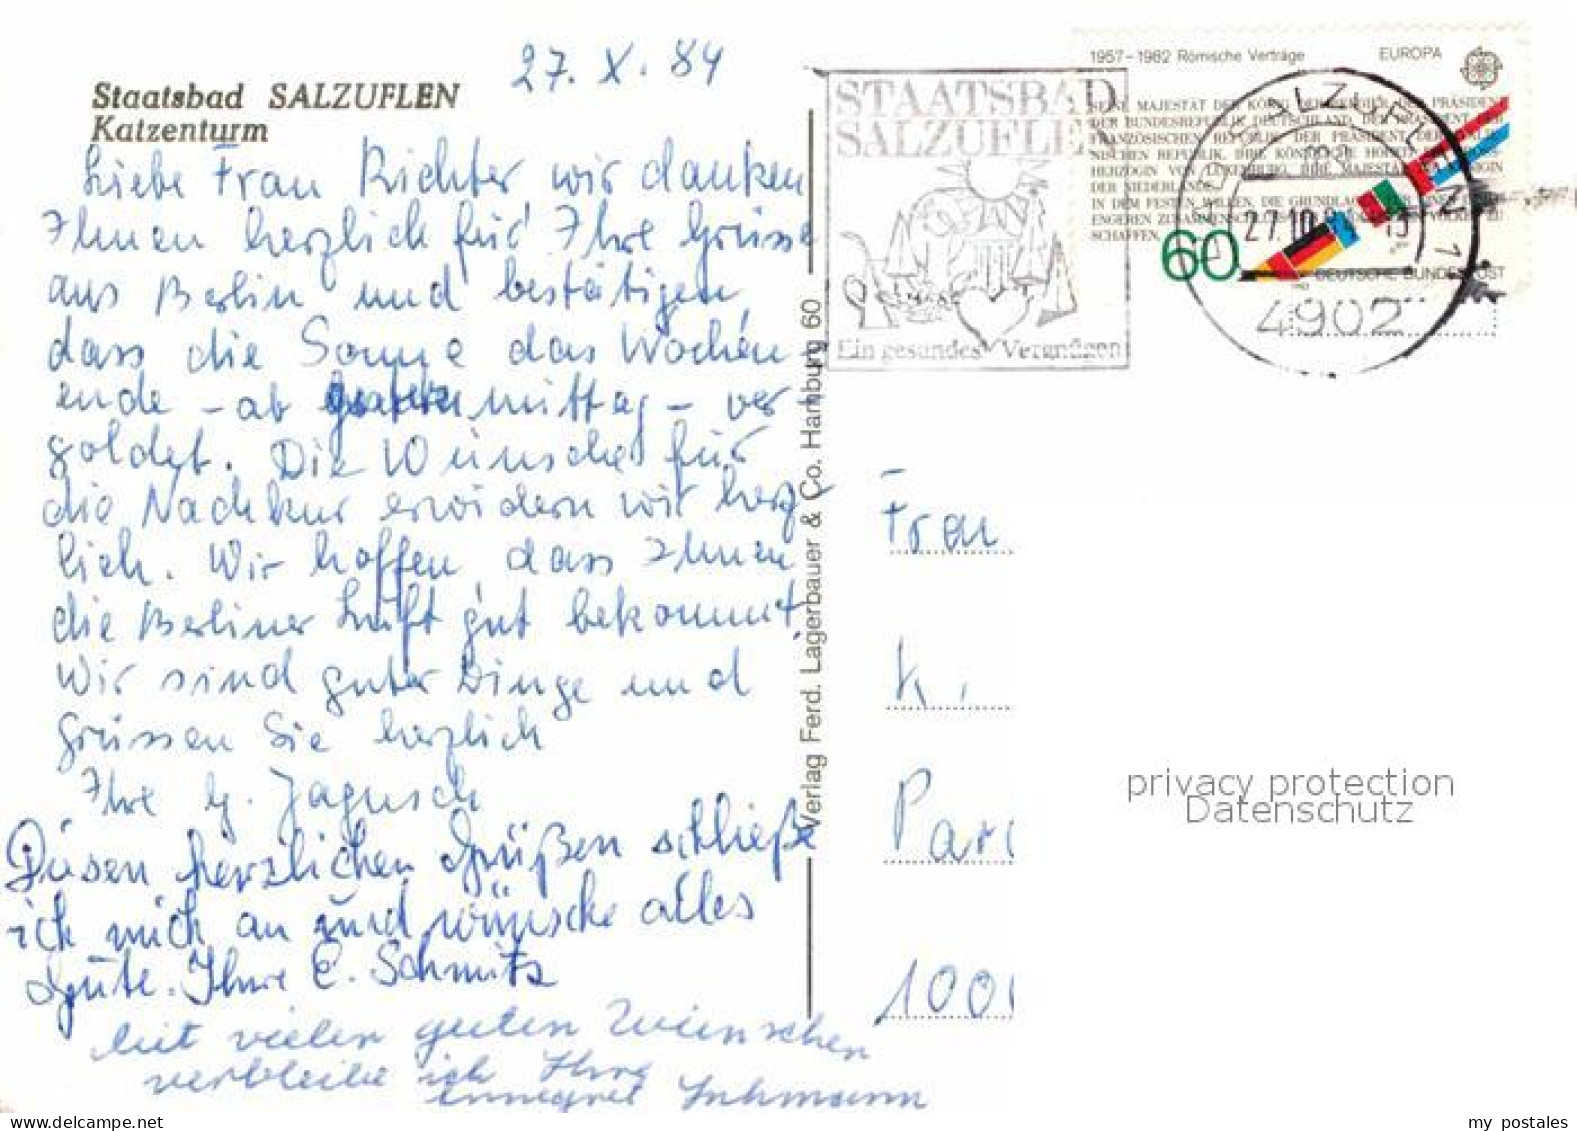 27. X. 84
Staatsbad SALZUFLEN
Katzenturm
Liebe Frau Richter, wir danken
Ihnen herzlich für Ihre Grüsse
aus Berlin und bestätigen,
dass die Sonne das Wochen
ende – ab mittag – ver-
goldet. Die Wünsche für
die Nachkur erwidern wir herz-
lich. Wir hoffen, dass Ihnen
die Berliner Luft gut bekommt.
Wir sind guter Dinge und
Grüssen Sie herzlich
Ihre G. Jagusch
Diesen herzlichen Grüßen schließe
ich mich an und wünsche alles
Gute. Ihre C. Schmitz
Mit vielen guten Wünschen
verbleibe ich Ihre
Annegret
Verlag Ferd. Lagerbauer & Co. Hamburg 60
STAATSBAD
SALZUFLEN
Ein gesundes Vergnügen
1957–1982 Römische Verträge EUROPA
SEINE MAJESTÄT DER KÖNIG DER BELGIER, DER PRÄSIDENT
DER BUNDESREPUBLIK DEUTSCHLAND, DER PRÄSIDENT DER
FRANZÖSISCHEN REPUBLIK, DER PRÄSIDENT DER ITALIE-
NISCHEN REPUBLIK, IHRE KÖNIGLICHE HOHEIT DIE GROSS-
HERZOGIN VON LUXEMBURG, IHRE MAJESTÄT DIE KÖNIGIN
DER NIEDERLANDE,
IN DEM FESTEN WILLEN, DIE GRUNDLAGEN FÜR EINEN IMMER
ENGEREN ZUSAMMENSCHLUSS DER EUROPÄISCHEN VÖLKER ZU
SCHAFFEN,
60
DEUTSCHE BUNDESPOST
SALZUFLEN 1
27.10.84
4902
Frau
K.
Par
100
privacy protection
Datenschutz
my postales